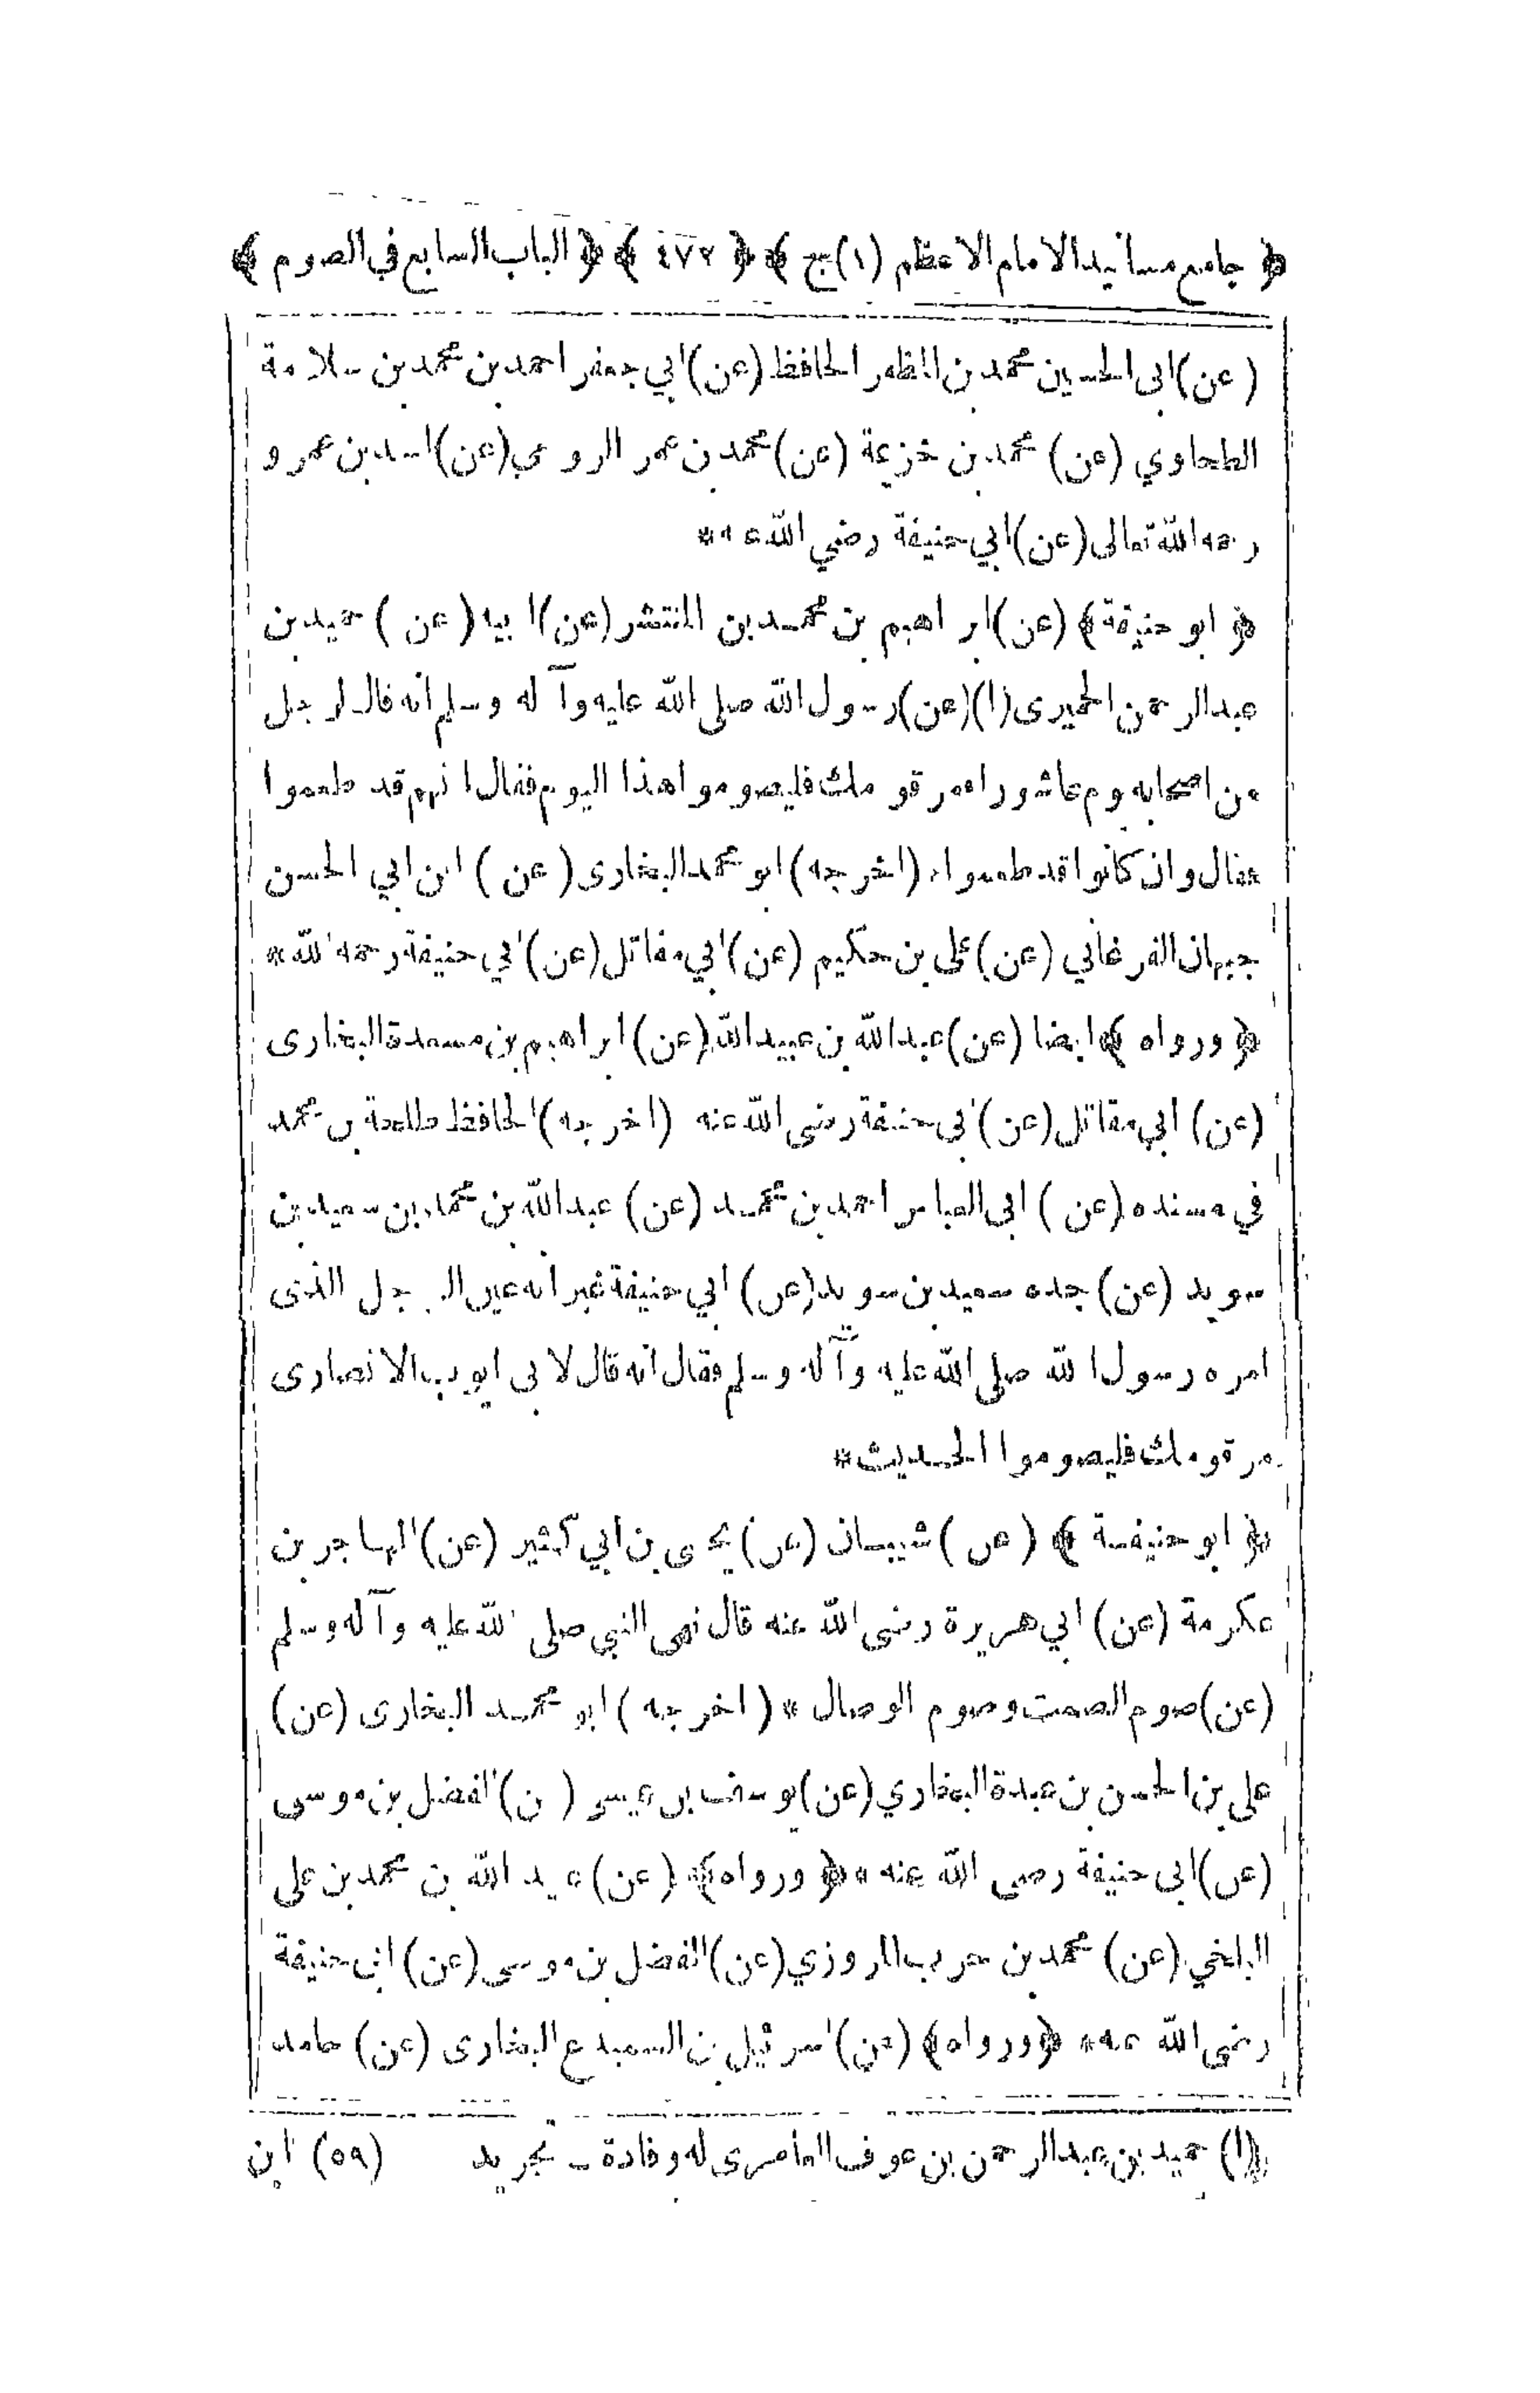 ﴿ جامع مسانيد الامام الاعظم (١) ج ﴾ ﴿ ٤٧٢ ﴾ ﴿ الباب السابع في الصوم ﴾
(عن) ابى الحسين محمد بن المظفر الحافظ (عن) ابي جعفر احمد بن محمد بن سلامة
الطحاوي (عن) محمد بن خزيمة (عن) محمد بن عمر الرومي (عن) اسد بن عمرو
رحمه الله تعالى (عن) ابي حنيفة رضي الله عنه *
﴿ ابو حنيفة ﴾ (عن) ابراهيم بن محمد بن المنتشر (عن) ابيه (عن) حميد بن
عبد الرحمن الحميرى (١) (عن) رسول الله صلى الله عليه وآله وسلم انه قال لرجل
من اصحابه يوم عاشوراء مر قومك فليصوموا هذا اليوم فقال انهم قد طعموا
فقال وان كانوا قد طعموا * (اخرجه) ابو محمد البخارى (عن) ابن ابي الحسن
جبهان الفرغاني (عن) علي بن حكيم (عن) ابي مقاتل (عن) ابي حنيفة رحمه الله *
﴿ ورواه ﴾ ايضا (عن) عبد الله بن عبيد الله (عن) ابراهيم بن مسعدة البخارى
(عن) ابي مقاتل (عن) ابي حنيفة رضى الله عنه (اخرجه) الحافظ طلحة بن محمد
في مسنده (عن) ابى العباس احمد بن محمد (عن) عبد الله بن محمد بن سعيد بن
سويد (عن) جده سعيد بن سويد (عن) ابي حنيفة غير انه عين الرجل الذى
امره رسول الله صلى الله عليه وآله وسلم فقال انه قال لابى ايوب الانصارى
مر قومك فليصوموا الحديث *
﴿ ابو حنيفة ﴾ (عن) شيبان (عن) يحيى بن ابي كثير (عن) المهاجر بن
عكرمة (عن) ابي هريرة رضى الله عنه قال نهى النبي صلى الله عليه وآله وسلم
(عن) صوم الصمت وصوم الوصال * (اخرجه) ابو محمد البخارى (عن)
علي بن الحسن بن عبدة البخاري (عن) يوسف بن عيسى (عن) الفضل بن موسى
(عن) ابى حنيفة رضى الله عنه * ﴿ ورواه ﴾ (عن) عبد الله بن محمد بن على
البلخي (عن) محمد بن حرب المروزي (عن) الفضل بن موسى (عن) ابى حنيفة
رضى الله عنه * ﴿ ورواه ﴾ (عن) اسرائيل بن السميدع البخارى (عن) حامد
(١) حميد بن عبد الرحمن بن عوف العامرى له وفادة ـ تجريد (٥٩) ابن